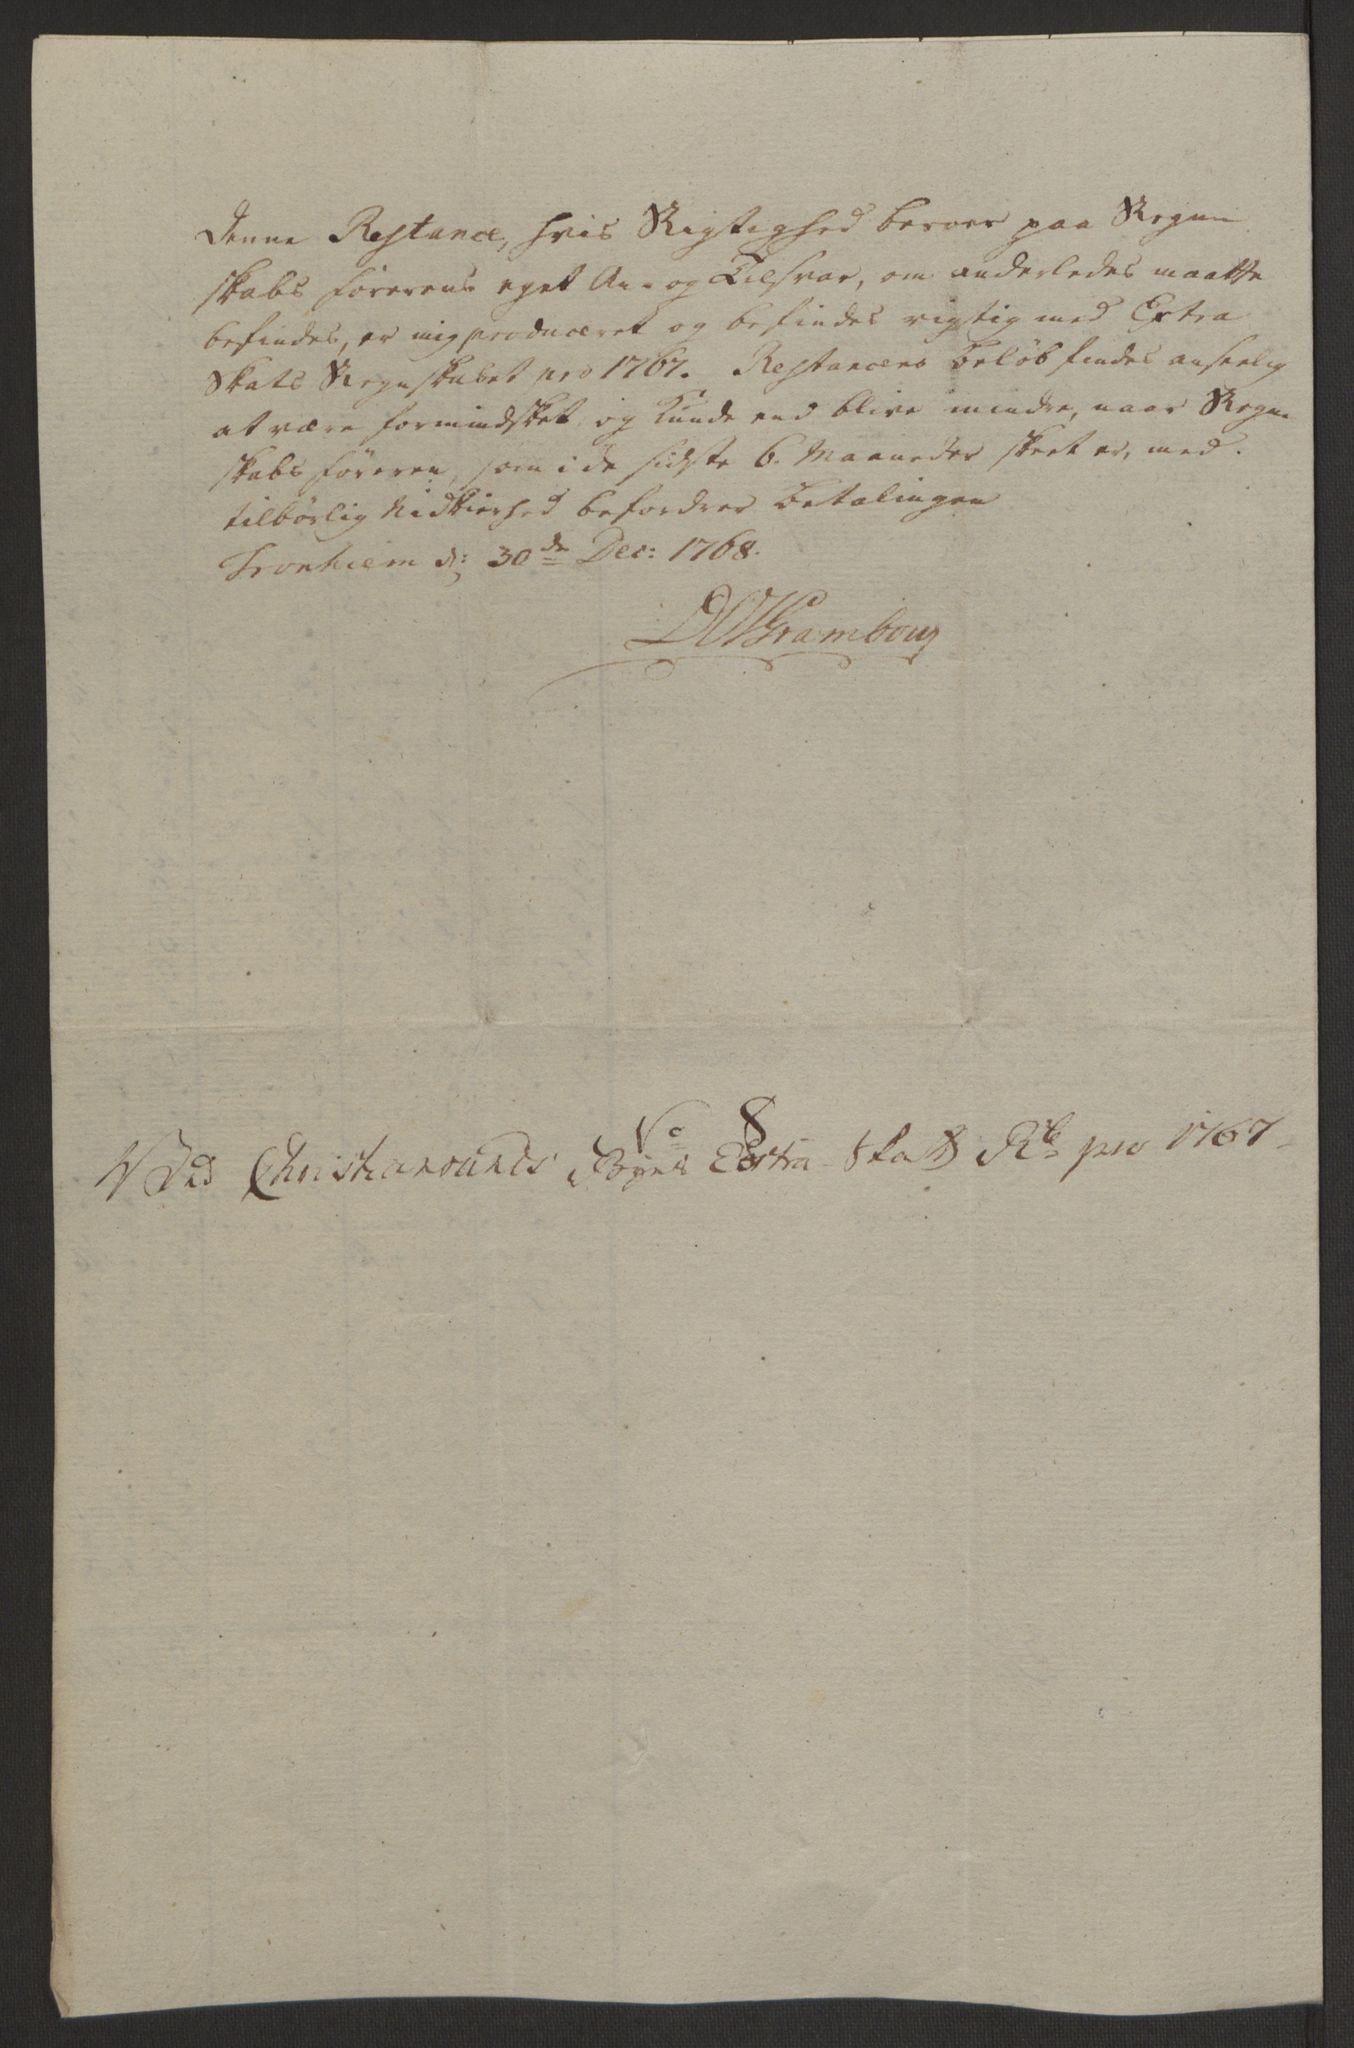 Denne Restance, hvis Rigtighed beroer paa Regn-
skabs førerens eget An- og Tilsvar, om anderledes maatte
befindes, er mig produceret og befindes rigtig med Extra
Skats Regnskabet pro 1767. Restancens Beløb findes anseelig
at være formindsket, og kunde end blive mindre, naar Regn-
skabsføreren, som i de sidste 6. Maaneder skeet er, med
tilbørlig Nidkierhed befordrer Betalingen
Tronhiem d: 30de Dec: 1768.
No 8
Ved Christiansunds Byes Extra Skatt Rb pro 1767